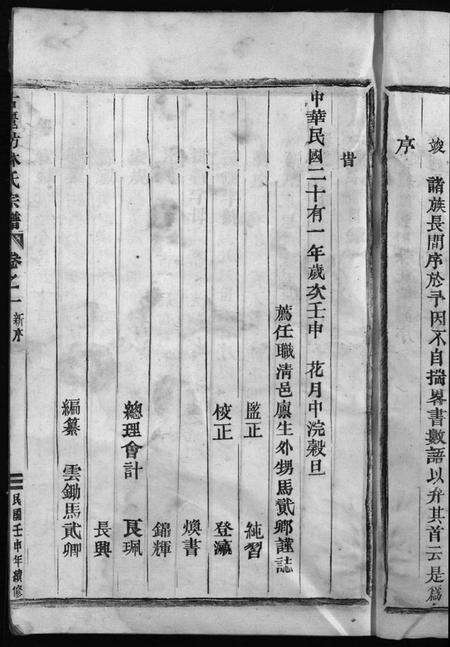 竣諸族長問序於予因不自揣畧書數語以弁其首云是爲
序
旹
中華民國二十有一年歲次壬申 花月中浣榖旦
薦任職清邑廩生外甥馬貳卿謹誌
監正 純習
校正 登瀛
煥書
錦輝
總理會計 良珮
長興
編纂 雲鋤馬貳卿
林氏宗譜 卷之一 新序 民國壬申年續修